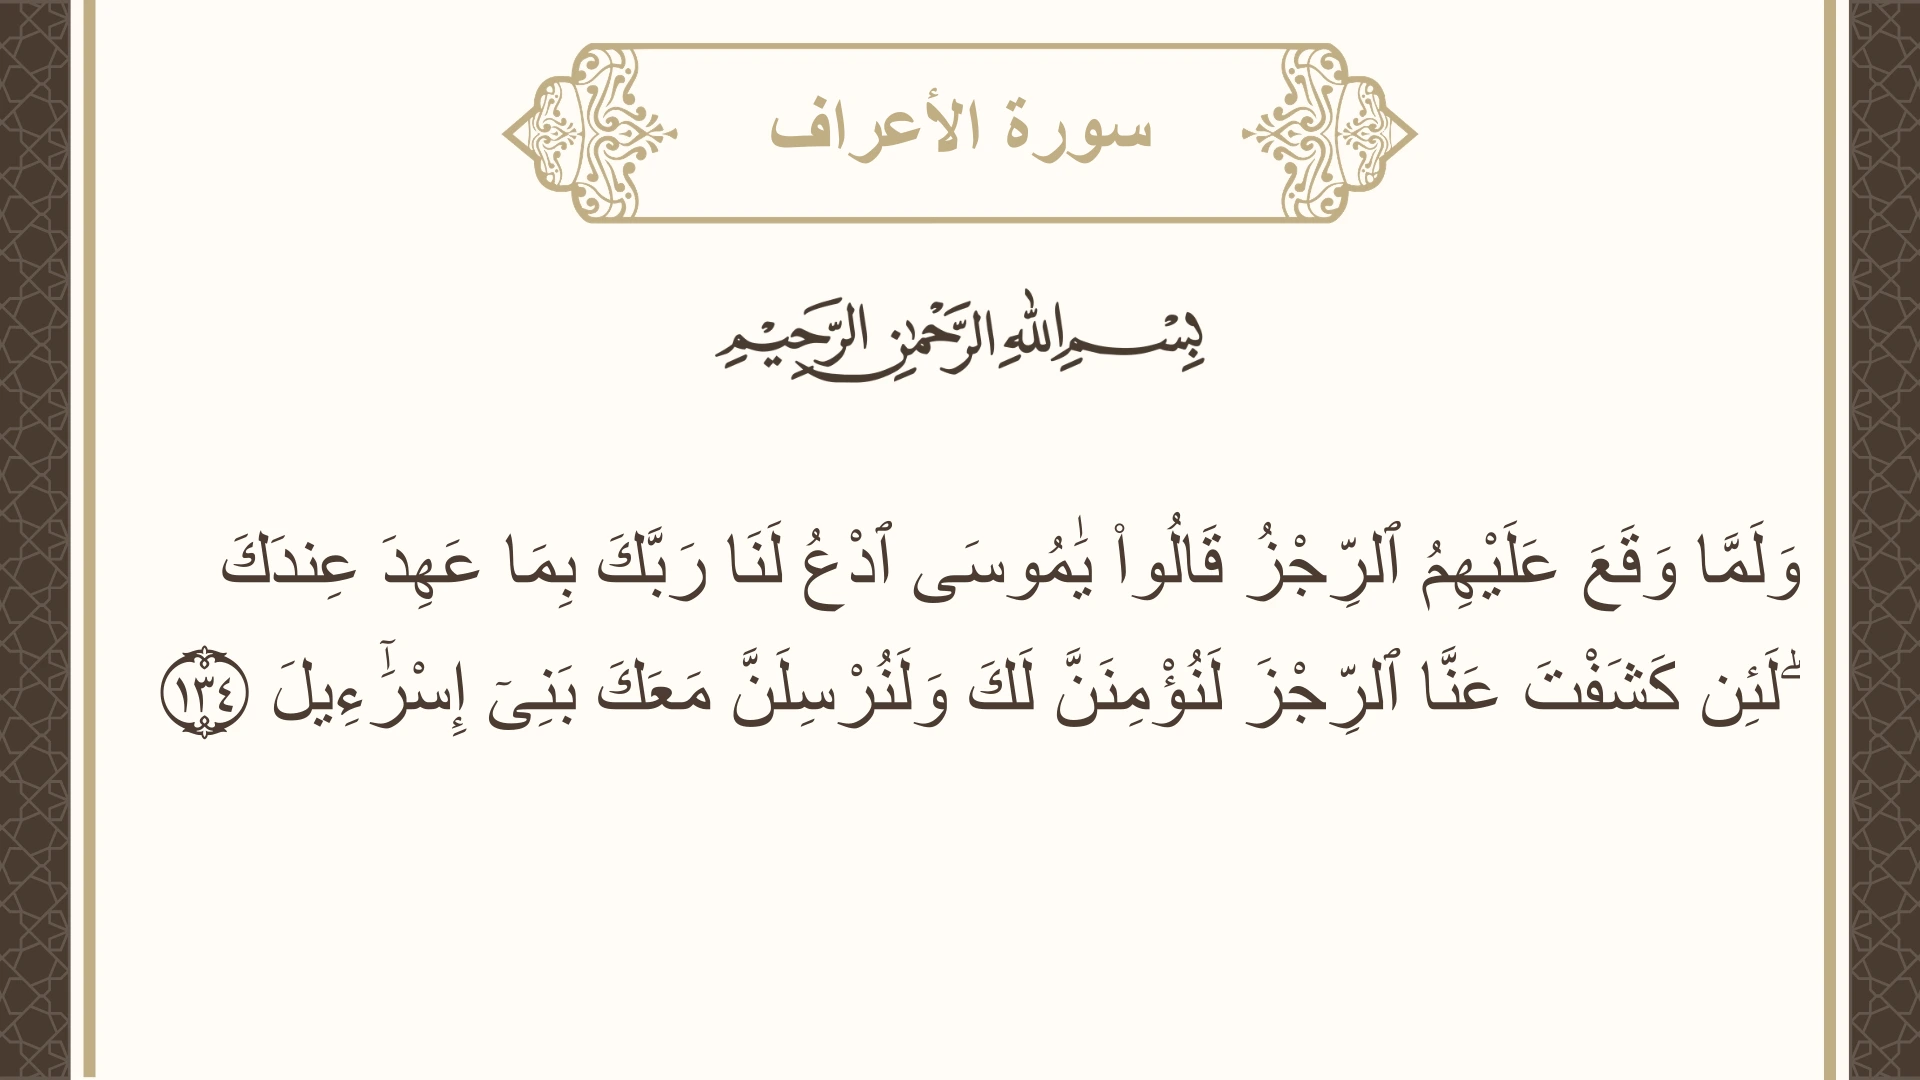 سورة الأعراف
بِسْمِ اللهِ الرَّحْمٰنِ الرَّحِيْمِ
وَلَمَّا وَقَعَ عَلَيْهِمُ ٱلرِّجْزُ قَالُوا۟ يَٰمُوسَى ٱدْعُ لَنَا رَبَّكَ بِمَا عَهِدَ عِندَكَ
ۖ لَئِن كَشَفْتَ عَنَّا ٱلرِّجْزَ لَنُؤْمِنَنَّ لَكَ وَلَنُرْسِلَنَّ مَعَكَ بَنِىٓ إِسْرَٰٓءِيلَ ١٣٤